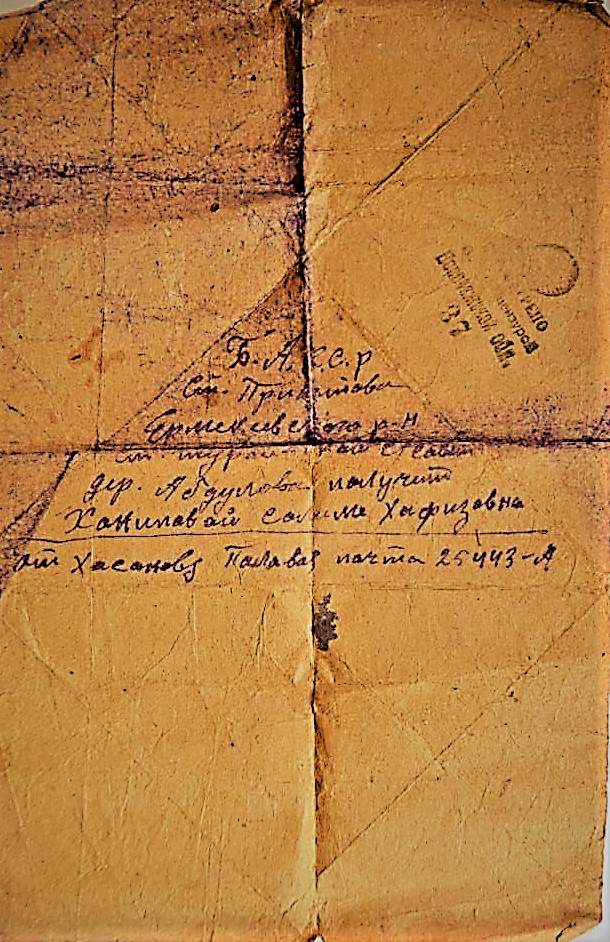 Б.А.С.С.Р
Ст. Приютова
Ермекеевского р-н
дер. Абдулова получит
Ханиповой Салиме Хафизовна
от Хасанова Палавая почта 25443-А
цензурой
37